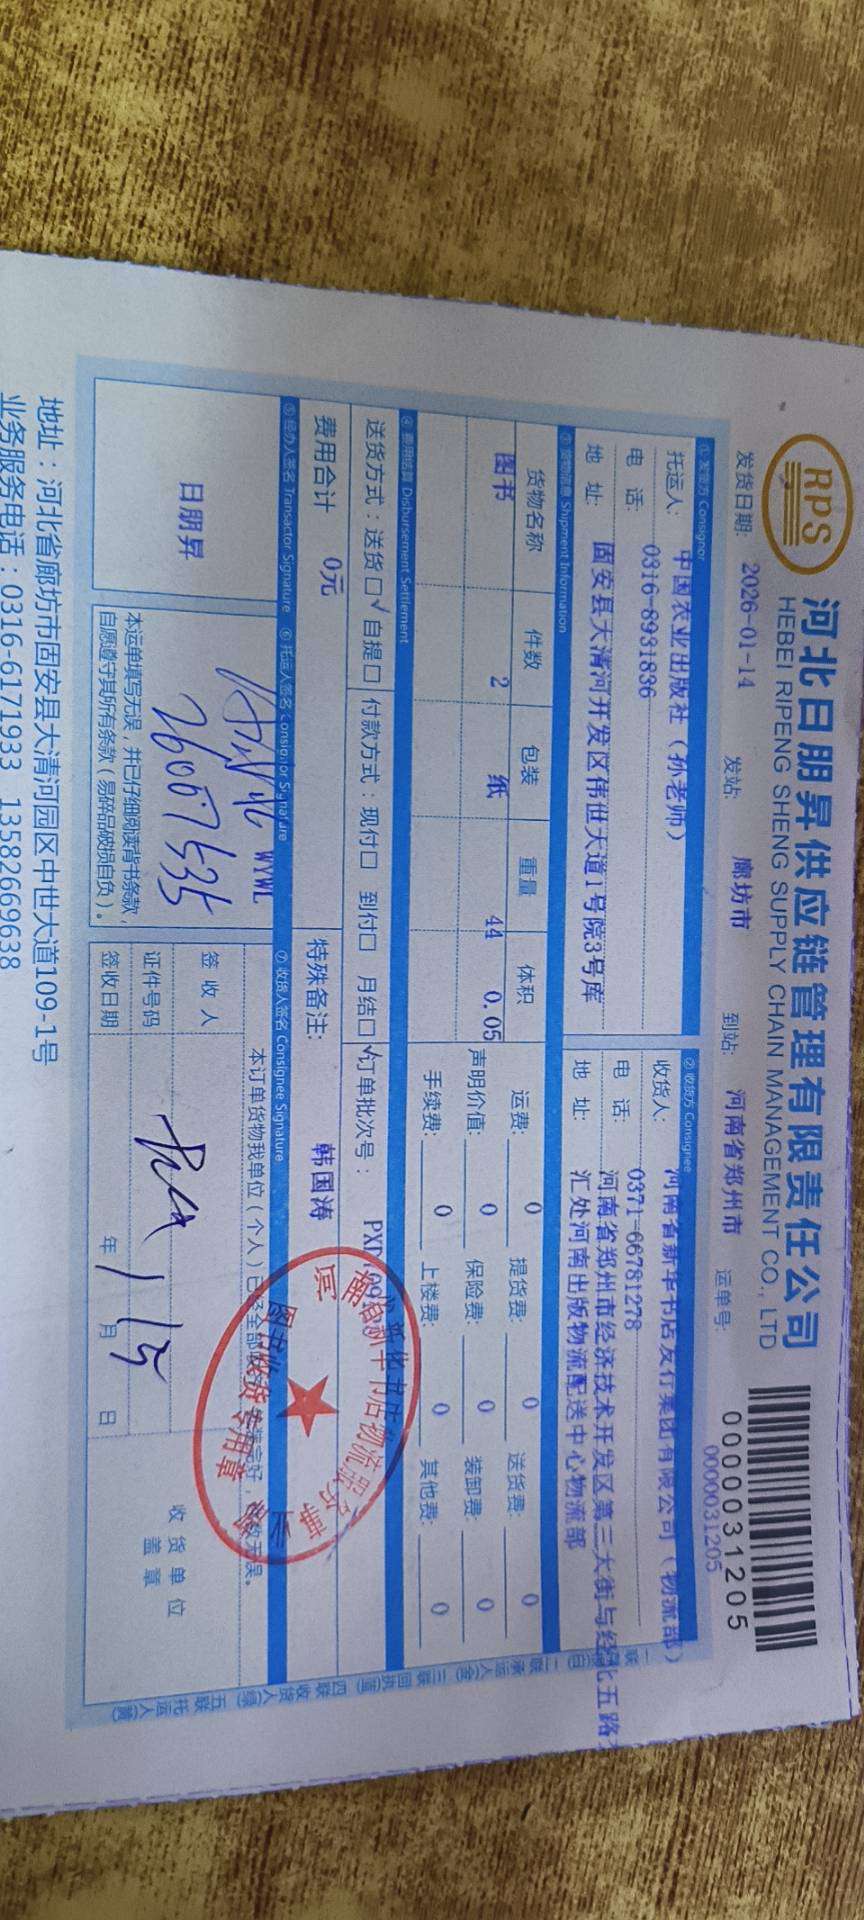 RPS
河北日朋昇供应链管理有限责任公司
HEBEI RIPENG SHENG SUPPLY CHAIN MANAGEMENT CO., LTD
0000031205
发货日期: 2026-01-14 发站: 廊坊市 到站: 河南省郑州市 运单号: 0000031205
① 发货方 Consignor
托运人: 中国农业出版社（孙老师）
电 话: 0316-6931836
地 址: 固安县大清河开发区伟世大道1号院3号库
② 收货方 Consignee
收货人: 河南省新华书店发行集团有限公司（物流部）
电 话: 0371-66781278
地 址: 河南省郑州市经济技术开发区第三大街与经北五路
汇处河南出版物流配送中心物流部
③ 货物信息 Shipment Information
货物名称 件数 包装 重量 体积
图书 2 纸 44 0.05
运费: 0 提货费: 0 送货费: 0
声明价值: 0 保险费: 0 装卸费: 0
手续费: 0 上楼费: 0 其他费: 0
④ 费用结算 Disbursement Settlement
送货方式：送货□√ 自提□ 付款方式：现付□ 到付□ 月结□√ 订单批次号： PXD
费用合计 0元 特殊备注: 韩国涛
⑤ 经办人签名 Transactor Signature ⑥ 托运人签名 Consignor Signature ⑦ 收货人签名 Consignee Signature
日朋昇
WYWL
26007535
本运单填写无误，并已仔细阅读背书条款，
自愿遵守其所有条款（易碎品破损自负）。
本订单货物我单位（个人）已经全部 完好， 无误。
签 收 人
证件号码
签收日期 年 1 月 15 日
收货单位
盖 章
河南省新华书店物流服务
事业
图书收货专用章
一联 二联承运人 三联回执 四联收货人 五联托运人
地址：河北省廊坊市固安县大清河园区中世大道109-1号
业务服务电话：0316-6171933 13582669638